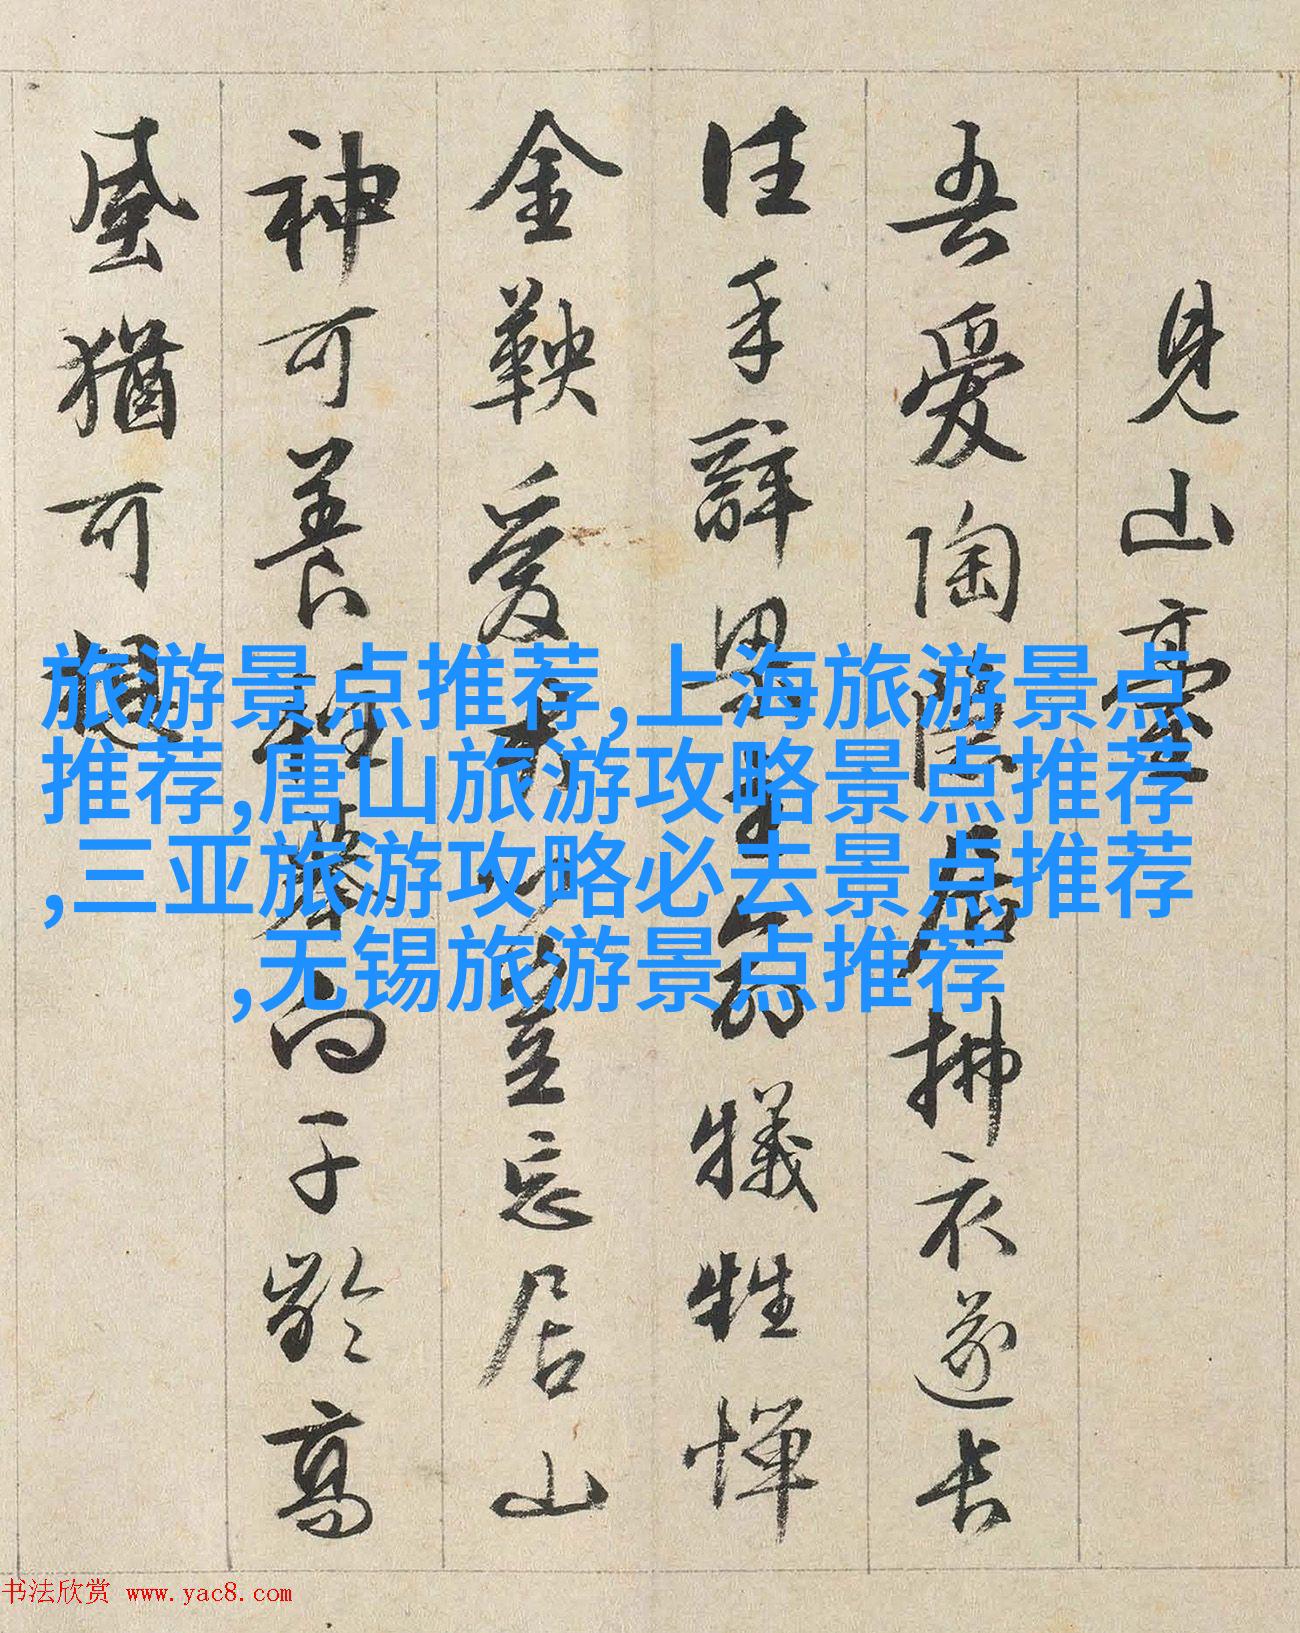 見山臺
吾爱陶隱居拂衣遂長
往手辭命犧牲惮
金鞅爱豈忘居山
神可養向子齡高
風猶可想
旅游景点推荐,上海旅游景点
推荐,唐山旅游攻略景点推荐
,三亚旅游攻略必去景点推荐
,无锡旅游景点推荐
书法欣赏 www.yac8.com